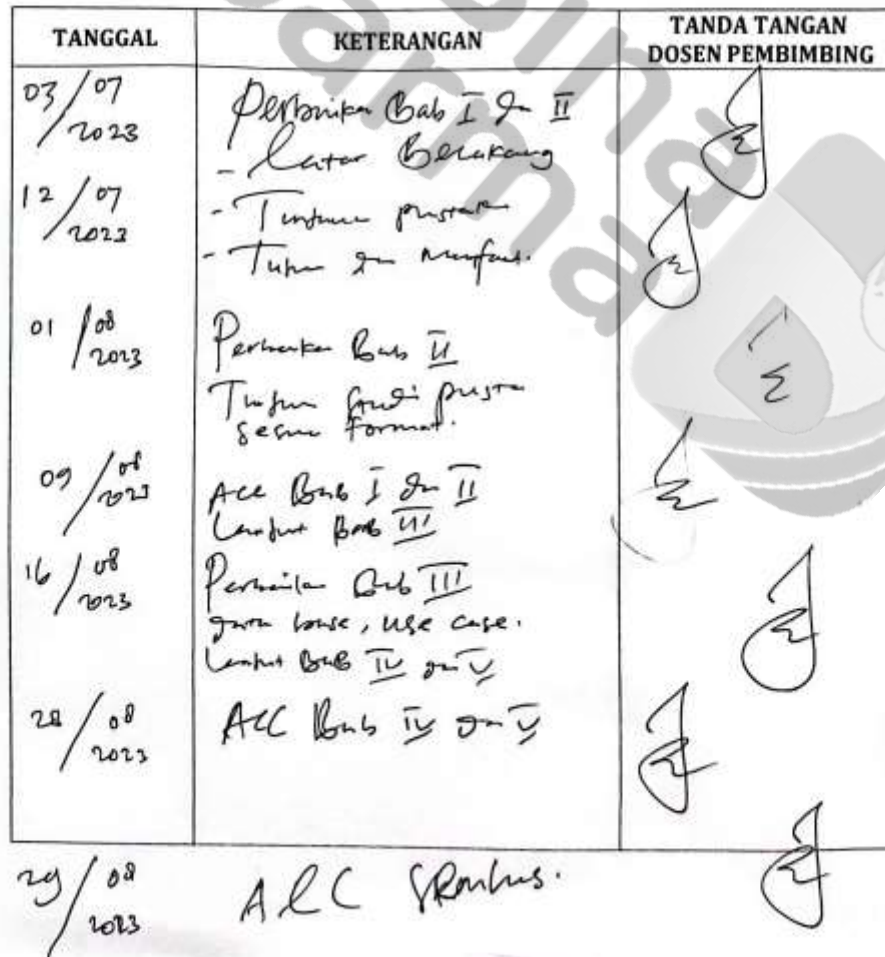 TANGGAL KETERANGAN TANDA TANGAN DOSEN PEMBIMBING
03/07 2023 Perbaikan Bab I dan II
- Latar Belakang
12/07 2023 - Tinjauan pustaka
- Tujuan dan Manfaat.
01/08 2023 Perbaikan Bab II
Tinjauan Studi pustaka
sesuai Format.
09/08 2023 Acc Bab I dan II
Lanjut Bab III
16/08 2023 Perbaikan Bab III
data base, use case.
Lanjut Bab IV dan V
28/08 2023 ACC Bab IV dan V
29/08 2023 ACC
bina
darma